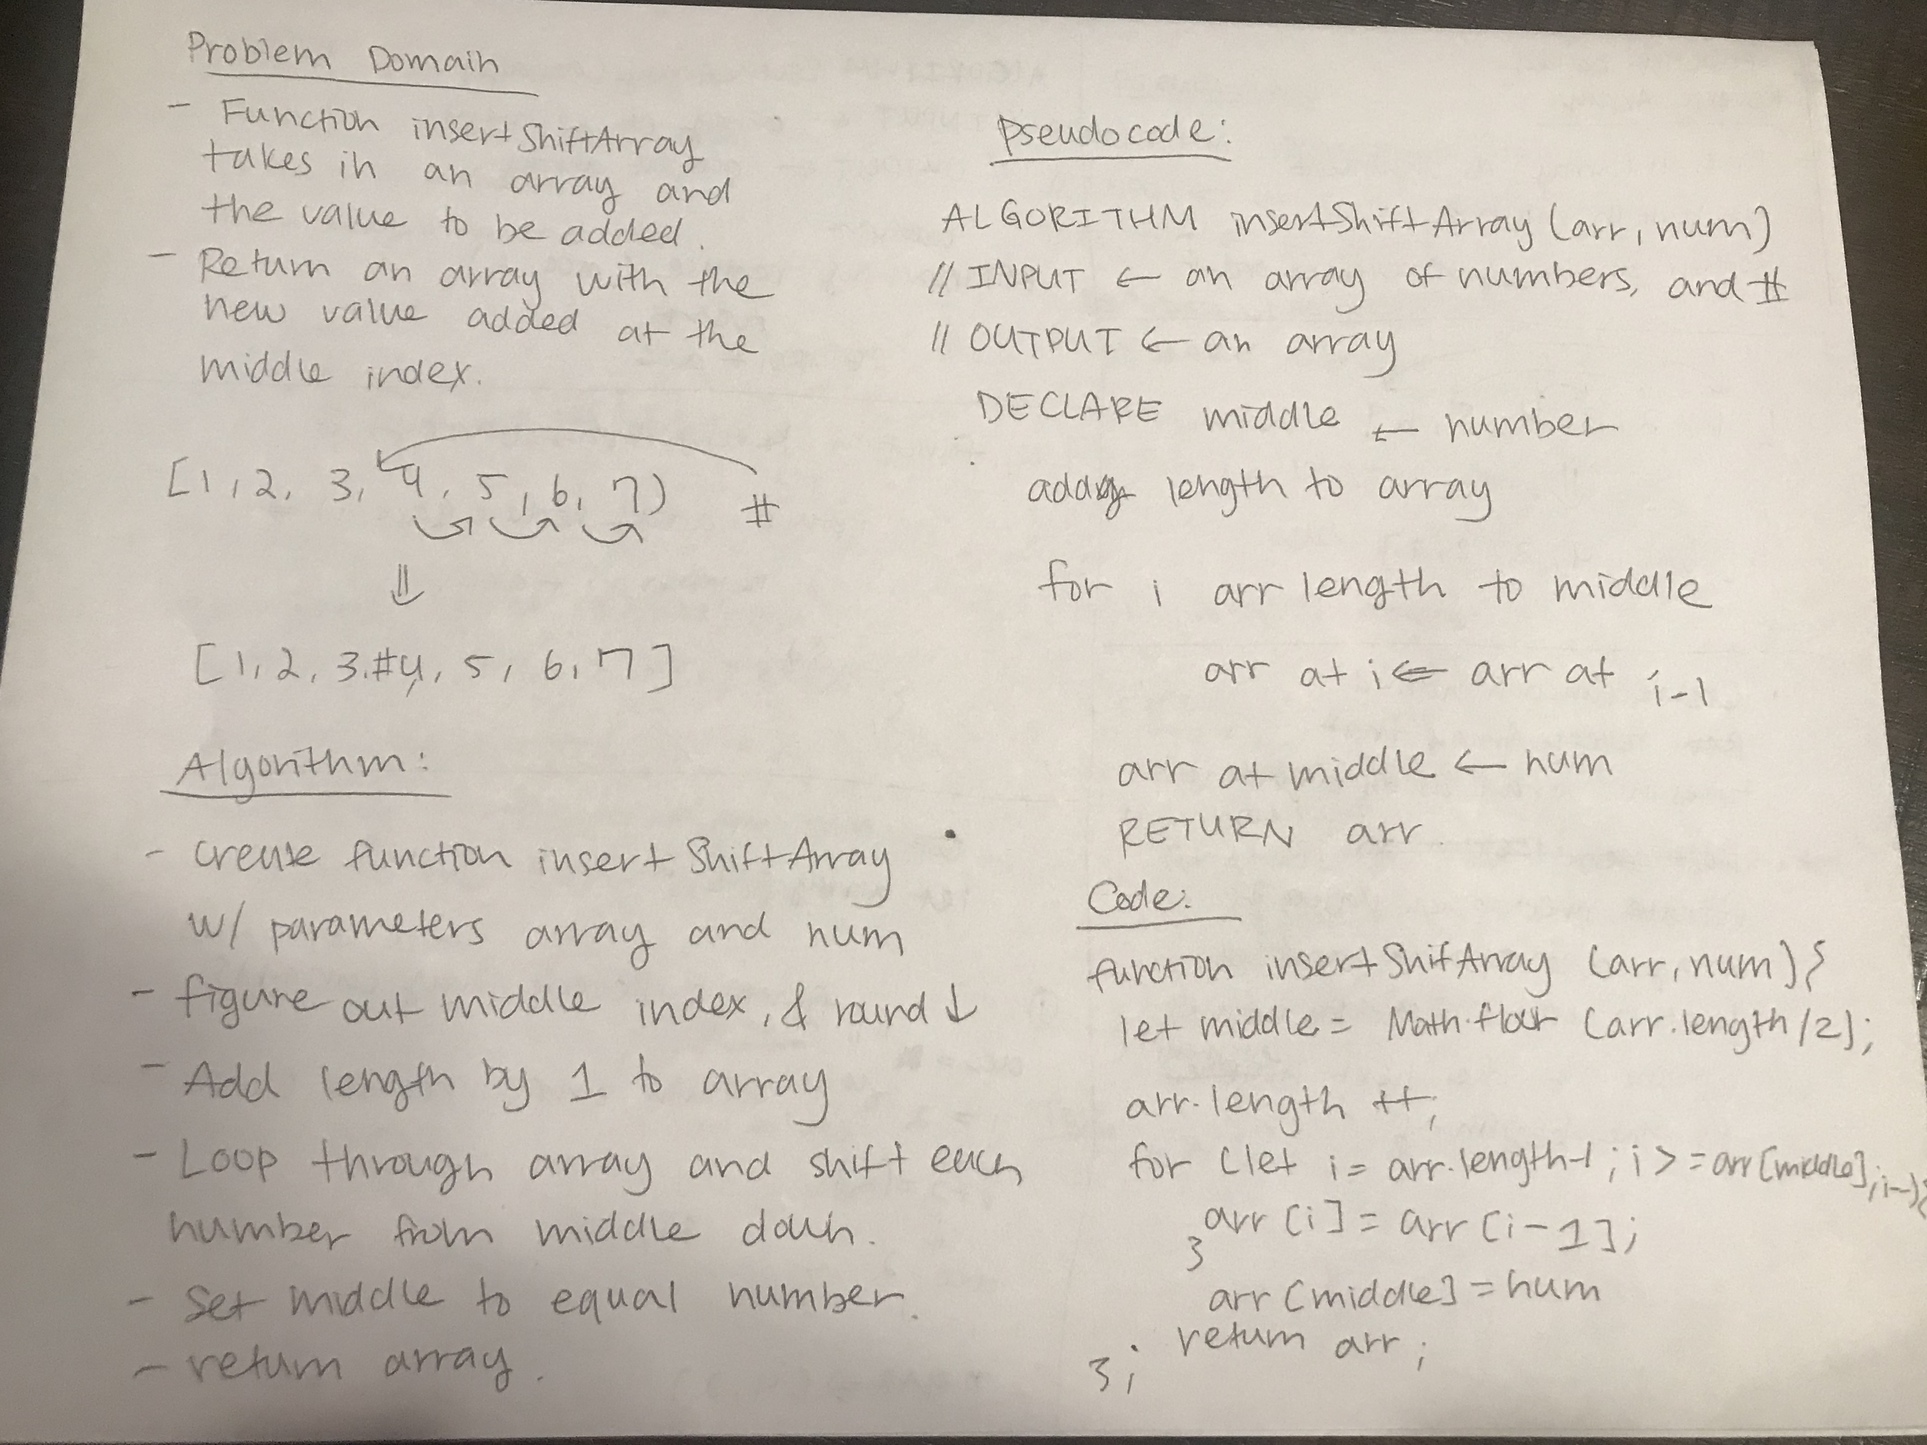 Problem Domain
- Function insertShiftArray
takes in an array and
the value to be added.
- Return an array with the
new value added at the
middle index.
[1, 2, 3, 4, 5, 6, 7) #
⇓
[1, 2, 3.#4, 5, 6, 7]
Algorithm:
- create function insertShiftArray
w/ parameters array and num
- figure out middle index, & round ↓
- Add length by 1 to array
- Loop through array and shift each
number from middle down.
- Set middle to equal number.
- return array.
Pseudocode:
ALGORITHM insertShiftArray (arr, num)
// INPUT ← an array of numbers, and #
// OUTPUT ← an array
DECLARE middle ← number
add length to array
for i arr length to middle
arr at i ⇐ arr at i-1
arr at middle ← num
RETURN arr.
Code:
function insertShifArray (arr, num) {
let middle = Math.floor (arr.length/2);
arr.length ++;
for (let i = arr.length-1; i >= arr[middle]; i--){
arr [i] = arr [i-1];
}
arr [middle] = num
return arr;
};